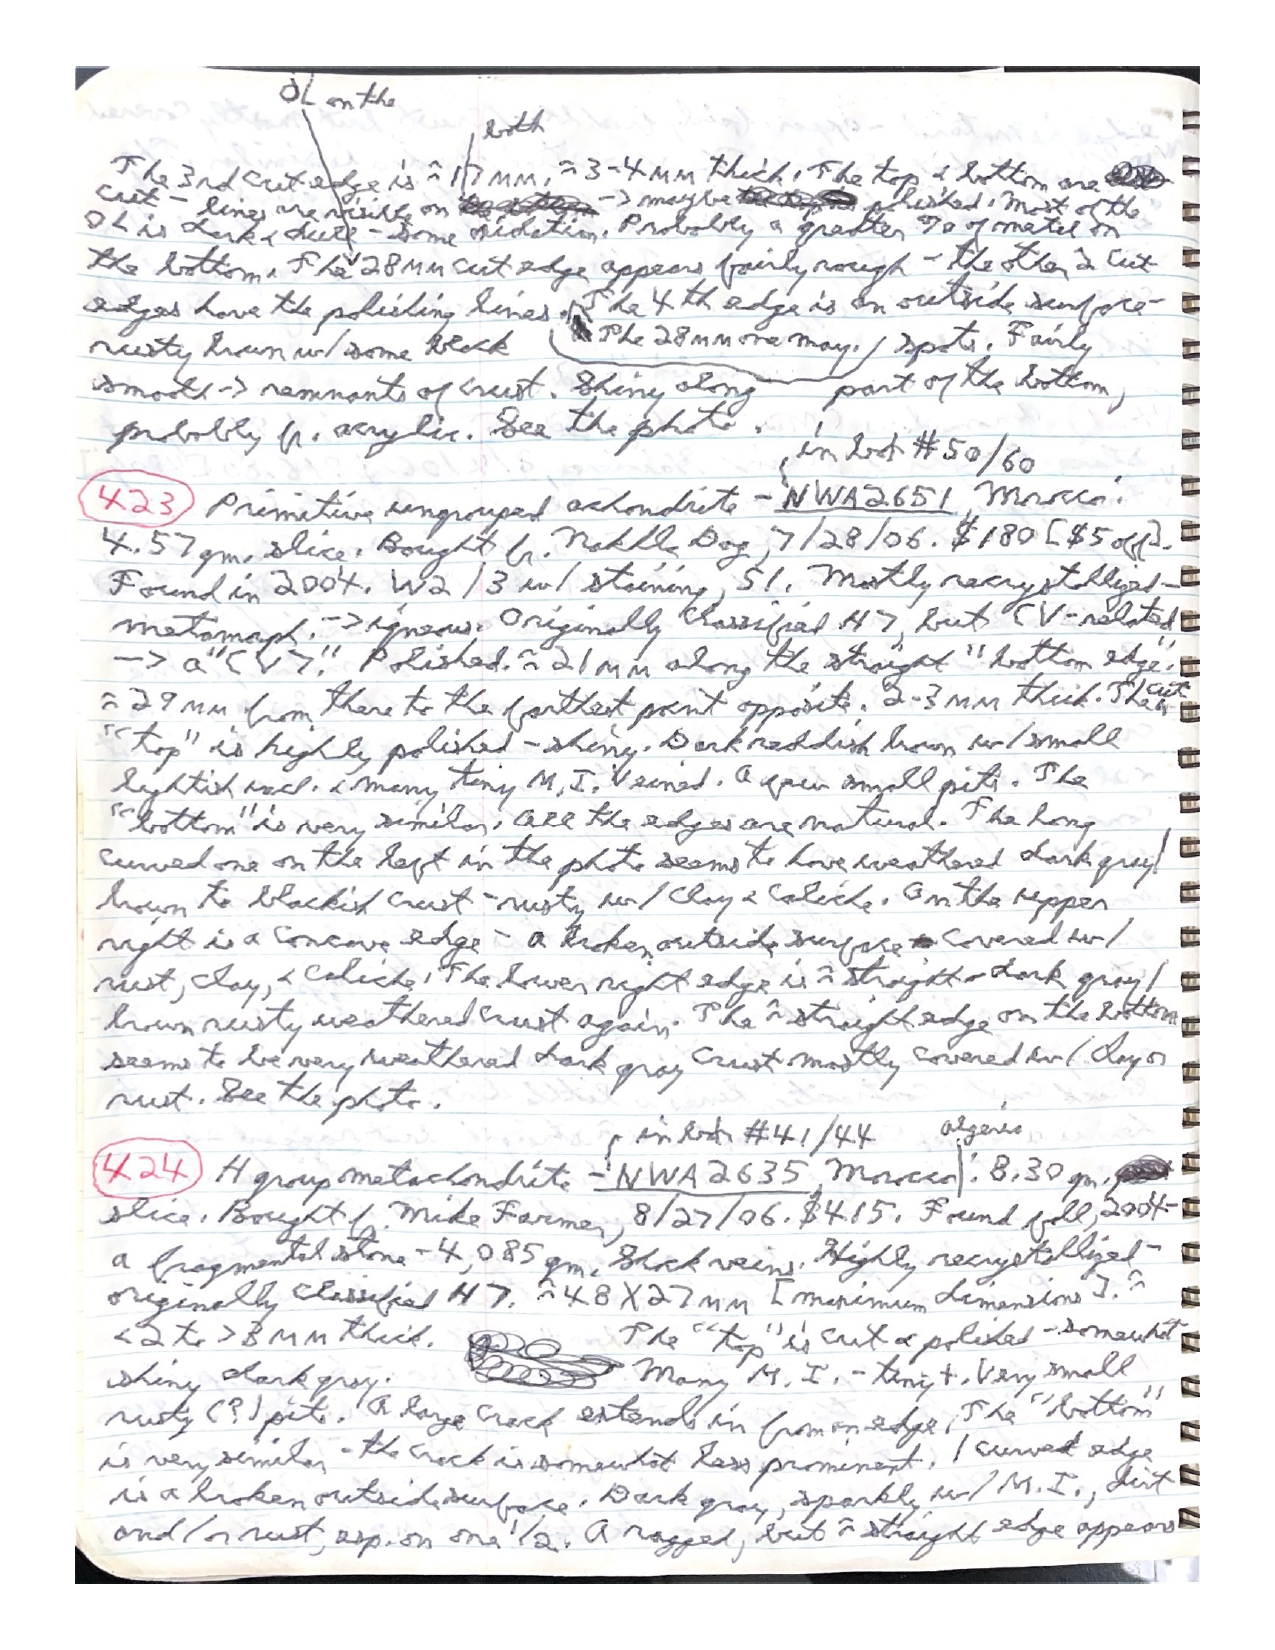 OL on the
both
The 3rd cut edge is ≈17 MM, ≈3-4 MM thick. The top & bottom are
cut - lines are visible on -> maybe polished. Most of the
OL is dark & dull - some oxidation. Probably a greater % of metal on
the bottom. The 28 MM cut edge appears fairly rough - the other 2 cut
edges have the polishing lines. The 4th edge is an outside surface -
The 28 MM one may.
rusty brown w/ some black spots. Fairly
smooth -> remnants of crust. Shiny along part of the bottom,
probably fr. acrylic. See the photo.
in bot #50/60
423 Primitive ungrouped achondrite - NWA 2651, Morocco.
4.57 gm. slice. Bought fr. Nakhla Dog, 7/28/06. $180 [$5 off].
Found in 2004. W2/3 w/ staining, S1. Mostly recrystallized -
metamorph. -> igneous. Originally classified H7, but CV-related
-> a "CV7." Polished. ≈21 MM along the straight "bottom edge."
≈29 MM from there to the farthest point opposite. 2-3 MM thick. The cut
"top" is highly polished - shiny. Dark reddish brown w/ small
lightish incl. & many tiny M.I. Veined. A few small pits. The
"bottom" is very similar. All the edges are natural. The long
curved one on the left in the photo seems to have weathered dark gray/
brown to blackish crust - rusty w/ clay & caliche. On the upper
right is a concave edge - a broken outside surface covered w/
rust, clay, & caliche. The lower right edge is ≈ straight - dark gray/
brown rusty weathered crust again. The ≈ straight edge on the bottom
seems to be very weathered dark gray crust mostly covered w/ clay or
rust. See the photo.
in bot #41/44 Algeria
424 H group metachondrite - NWA 2635, Morocco. 8.30 gm.
slice. Bought fr. Mike Farmer, 8/27/06. $415. Found fall, 2004 -
a fragmental stone - 4,085 gm. Shock veins. Highly recrystallized -
originally classified H7. ≈48 X 27 MM [maximum dimensions]. ≈
<2 to >3 MM thick. The "top" is cut & polished - somewhat
shiny dark gray. Many M.I. - tiny +. Very small
rusty (?) pits. A large crack extends in from an edge. The "bottom"
is very similar - the crack is somewhat less prominent. 1 curved edge
is a broken outside surface. Dark gray, sparkly w/ M.I., dirt
and/or rust, esp. on one 1/2. A ragged, but ≈ straight edge appears